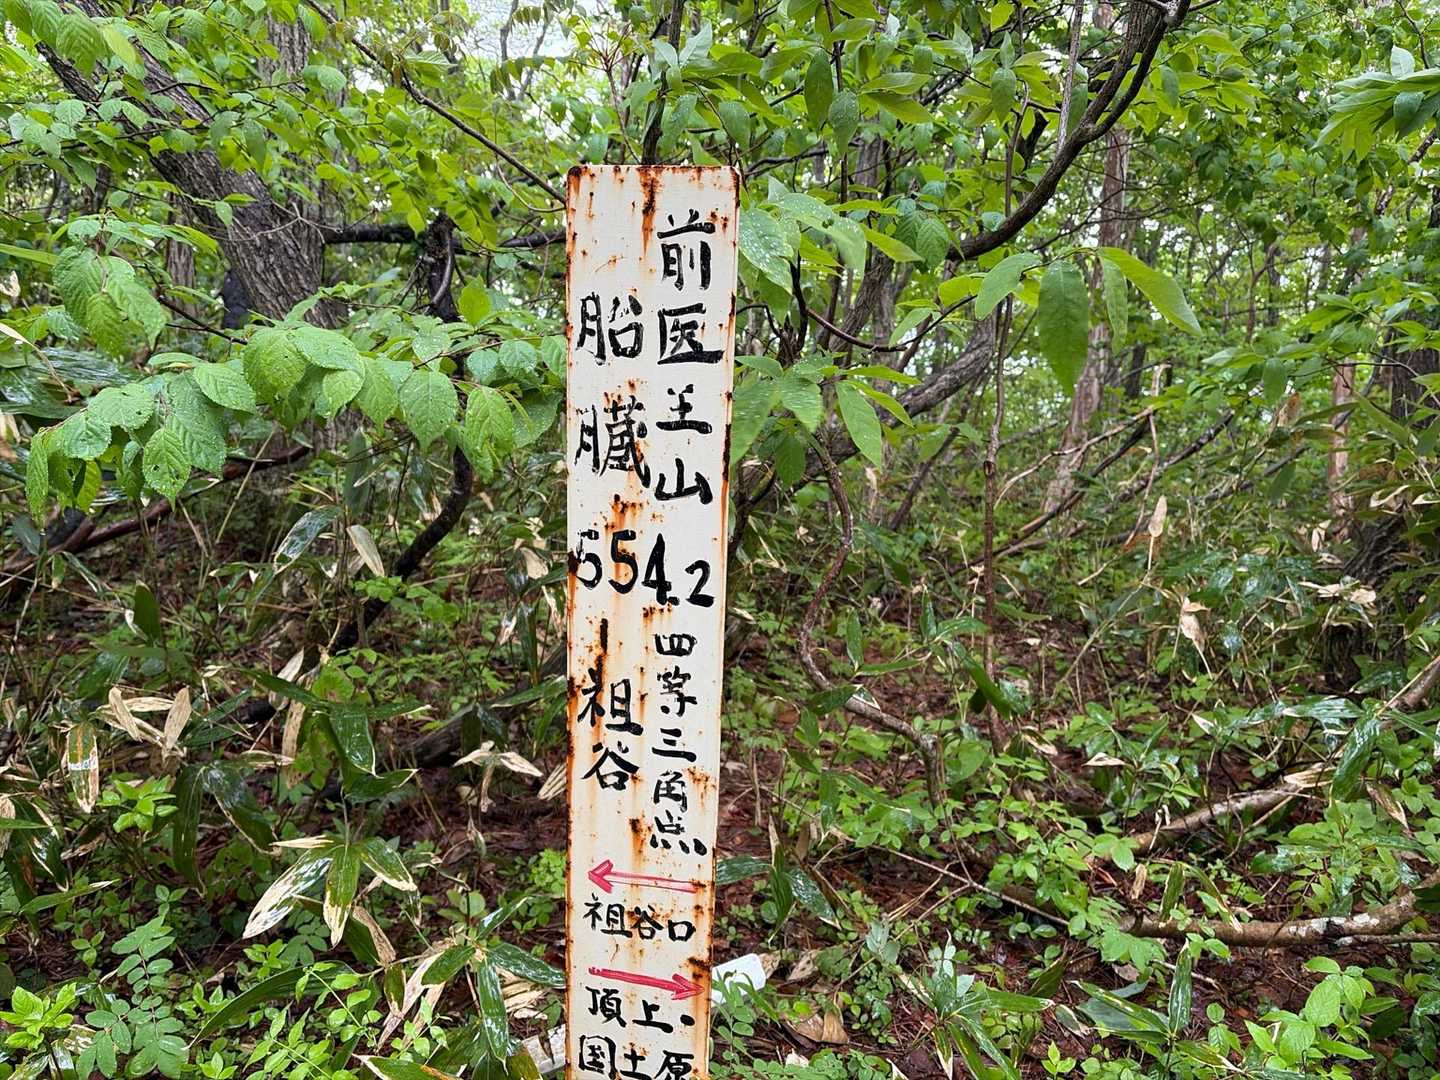 前医王山
胎臓
554.2
四等三角点
－祖谷
祖谷口
頂上・
国土原